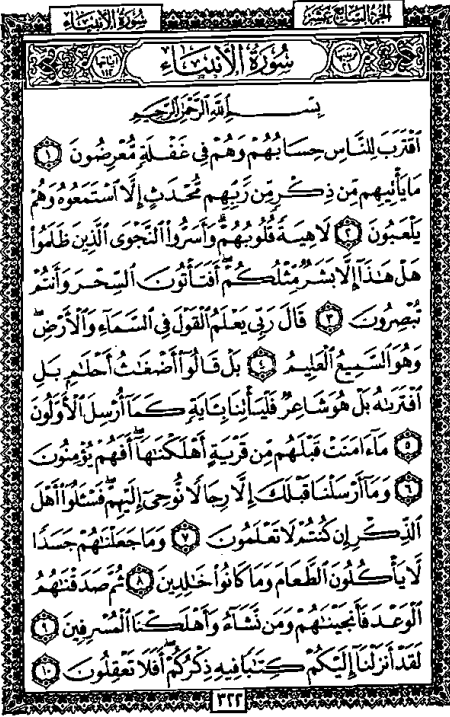 الجزء السابع عشر
سُورَةُ الأَنْبِيَاء
ترتيبها ٢١
سُورَةُ الأَنبِيَاءِ
آياتها ١١٢
بِسْمِ اللَّهِ الرَّحْمَٰنِ الرَّحِيمِ
ٱقْتَرَبَ لِلنَّاسِ حِسَابُهُمْ وَهُمْ فِى غَفْلَةٍ مُّعْرِضُونَ ١
مَا يَأْتِيهِم مِّن ذِكْرٍ مِّن رَّبِّهِم مُّحْدَثٍ إِلَّا ٱسْتَمَعُوهُ وَهُمْ
يَلْعَبُونَ ٢ لَاهِيَةً قُلُوبُهُمْ ۗ وَأَسَرُّوا۟ ٱلنَّجْوَى ٱلَّذِينَ ظَلَمُوا۟
هَلْ هَٰذَآ إِلَّا بَشَرٌ مِّثْلُكُمْ ۖ أَفَتَأْتُونَ ٱلسِّحْرَ وَأَنتُمْ
تُبْصِرُونَ ٣ قَالَ رَبِّى يَعْلَمُ ٱلْقَوْلَ فِى ٱلسَّمَآءِ وَٱلْأَرْضِ ۖ
وَهُوَ ٱلسَّمِيعُ ٱلْعَلِيمُ ٤ بَلْ قَالُوٓا۟ أَضْغَٰثُ أَحْلَٰمٍۭ بَلِ
ٱفْتَرَىٰهُ بَلْ هُوَ شَاعِرٌ فَلْيَأْتِنَا بِـَٔايَةٍ كَمَآ أُرْسِلَ ٱلْأَوَّلُونَ
٥ مَآ ءَامَنَتْ قَبْلَهُم مِّن قَرْيَةٍ أَهْلَكْنَٰهَآ ۖ أَفَهُمْ يُؤْمِنُونَ
٦ وَمَآ أَرْسَلْنَا قَبْلَكَ إِلَّا رِجَالًا نُّوحِىٓ إِلَيْهِمْ ۖ فَسْـَٔلُوٓا۟ أَهْلَ
ٱلذِّكْرِ إِن كُنتُمْ لَا تَعْلَمُونَ ٧ وَمَا جَعَلْنَٰهُمْ جَسَدًا
لَّا يَأْكُلُونَ ٱلطَّعَامَ وَمَا كَانُوا۟ خَٰلِدِينَ ٨ ثُمَّ صَدَقْنَٰهُمُ
ٱلْوَعْدَ فَأَنجَيْنَٰهُمْ وَمَن نَّشَآءُ وَأَهْلَكْنَا ٱلْمُسْرِفِينَ ٩
لَقَدْ أَنزَلْنَآ إِلَيْكُمْ كِتَٰبًا فِيهِ ذِكْرُكُمْ ۖ أَفَلَا تَعْقِلُونَ ١٠
٣٢٢